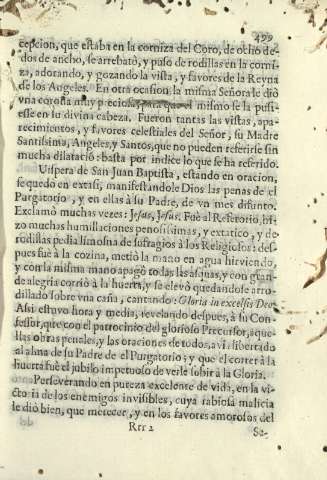 499
cepcion, que estaba en la corniza del Coro, de ocho de-
dos de ancho, se arrebatò, y puso de rodillas en la corni-
za, adorando, y gozando la vista, y favores de la Reyna
de los Angeles. En otra ocasion la misma Señora le diò
vna corona muy preciosa, para que el mismo se la pusi-
esse en su divina cabeza. Fueron tantas las vistas, apa-
recimientos, y favores celestiales del Señor, su Madre
Santissima, Angeles, y Santos, que no pueden referirse sin
mucha dilatacio: basta por indice lo que se ha referido.
Uispera de San Juan Baptista, estando en oracion,
se quedo en extasi, manifestandole Dios las penas de el
Purgatorio, y en ellas à su Padre, de vn mes difunto.
Exclamò muchas vezes: Jesus, Jesus. Fuè al Refitorio, hi-
zo muchas humillaciones penosissimas, y extatico, y de
rodillas pedia limosna de sufragios à los Religiosos: des-
pues fuè à la cozina, metiò la mano en agua hirviendo,
y con la misma mano apagò todas las asquas, y con gran-
de alegria corriò à la huerta, y se elevò quedandose arro-
dillado sobre vna caña, cantando: Gloria in excelsis Deo.
Assi estuvo hora y media, revelando despues, à su Con-
fessor, que con el patrocinio del glorioso Precursor, aque-
llas obras penales, y las oraciones de todos, avia libertado
al alma de su Padre de el Purgatorio; y que el correr à la
huerta fuè el jubilo impetuoso de verle subir à la Gloria.
Perseverando en pureza excelente de vida, en la vi-
ctoria de los enemigos invisibles, cuya rabiosa malicia
le diò bien, que merecer, y en los favores amorosos del
Rrr 2
Se-